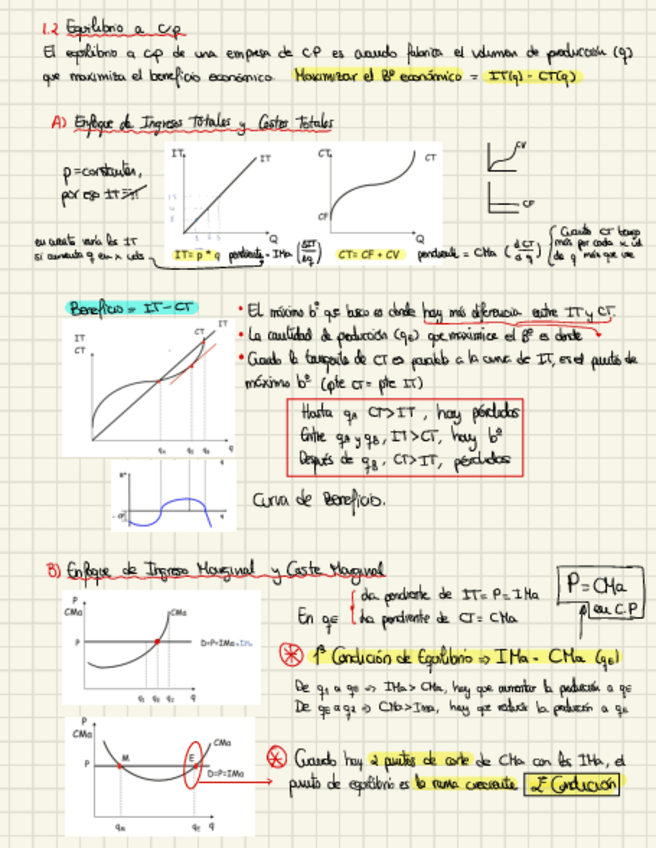 1.2 Equilibrio a C.P
El equilibrio a c.p de una empresa de C.P es cuando fabrica el volumen de producción (q)
que maximiza el beneficio económico. Maximizar el Bº económico = IT(q) - CT(q)
A) Enfoque de Ingresos Totales y Costes Totales
p=constantes,
por eso IT
IT
IT
Q
CT
CT
CF
Q
CV
CF
en cuanto varía los IT
si aumenta q en x uds
IT = p * q pendiente = IMa (ΔIT/Δq)
CT = CF + CV pendiente = CMa (dCT/dq)
Cuanto CT
más por cada x ud
de q más que
Beneficio = IT - CT
• El máximo bº que busco es donde hay más diferencia entre IT y CT.
• La cantidad de producción (qe) que maximice el Bº es donde
• Cuando la tangente de CT es paralela a la curva de IT, es el punto de
máximo bº (pte CT = pte IT)
IT
CT
CT
IT
q
Hasta qA CT>IT, hay pérdidas
Entre qA y qB, IT>CT, hay bº
Después de qB, CT>IT, pérdidas
Bº
-CF
q
Curva de Beneficio.
B) Enfoque de Ingreso Marginal y Coste Marginal
P
CMa
CMa
P
D=P=IMa
q1 qE q2 q
En qE
La pendiente de IT = P = IMa
La pendiente de CT = CMa
P = CMa
en C.P
1ª Condición de Equilibrio => IMa = CMa (qE)
De q1 a qE => IMa > CMa, hay que aumentar la producción a qE
De qE a q2 => CMa > Ima, hay que reducir la producción a qE
P
CMa
CMa
P
M
E
D=P=IMa
qM qE q
Cuando hay 2 puntos de corte de CMa con los IMa, el
punto de equilibrio es la rama creciente 2ª Condición